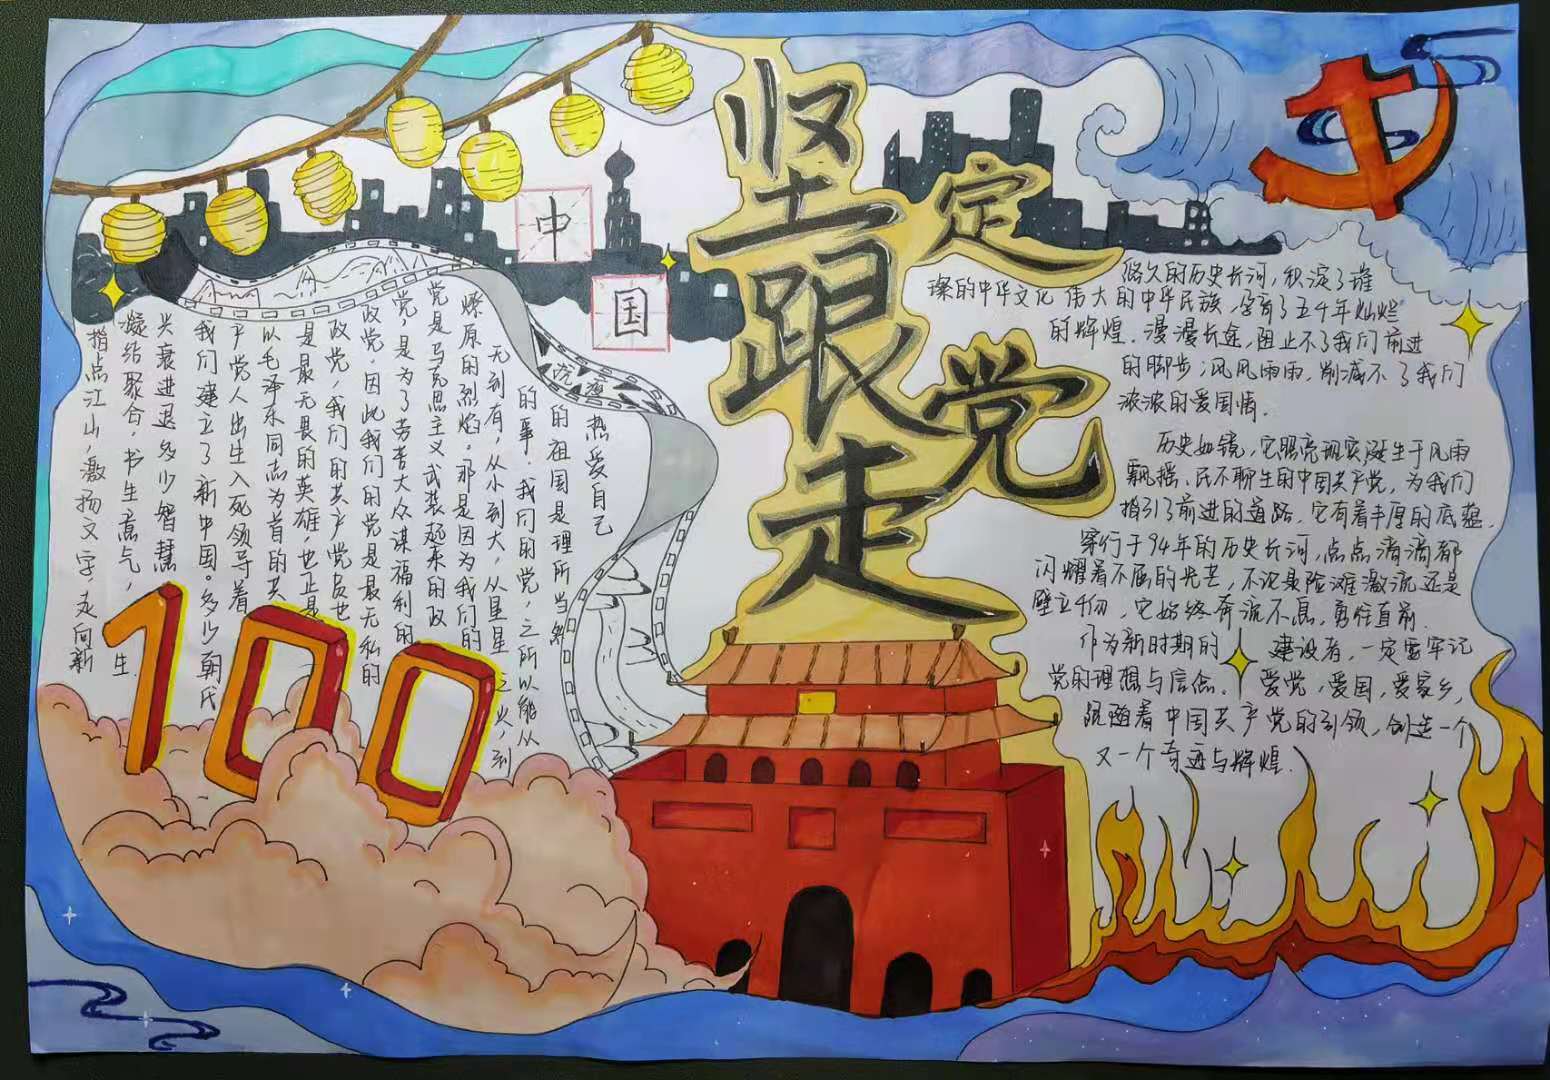 坚定
跟党
走
中
国
100
热爱自己
的祖国是理所当然
的事。我们的党，之所以能从
无到有，从小到大，从星星之火到
燎原的烈焰，那是因为我们的
党是马克思主义武装起来的政
党，是为了劳苦大众谋福利的
政党，因此我们的党是最无私的
政党，我们的共产党员也
是最无畏的英雄，也正是
以毛泽东同志为首的共
产党人出生入死领导着
我们建立了新中国。多少朝代
兴衰进退，多少智慧
凝结聚合，书生意气，生
指点江山，激扬文字，走向新
悠久的历史长河，积淀了璀
璨的中华文化 伟大的中华民族，孕育了五千年灿烂
的辉煌．漫漫长途，阻止不了我们前进
的脚步；风风雨雨，削减不了我们
浓浓的爱国情．
历史如镜，它照亮现实诞生于风雨
飘摇、民不聊生的中国共产党，为我们
指引了前进的道路．它有着丰厚的底蕴．
穿行于94年的历史长河，点点滴滴都
闪耀着不屈的光芒，不论是险难激流还是
壁立千仞，它始终奔流不息，勇往直前．
作为新时期的建设者，一定要牢记
党的理想与信念．爱党，爱国，爱家乡，
跟随着中国共产党的引领，创造一个
又一个奇迹与辉煌．